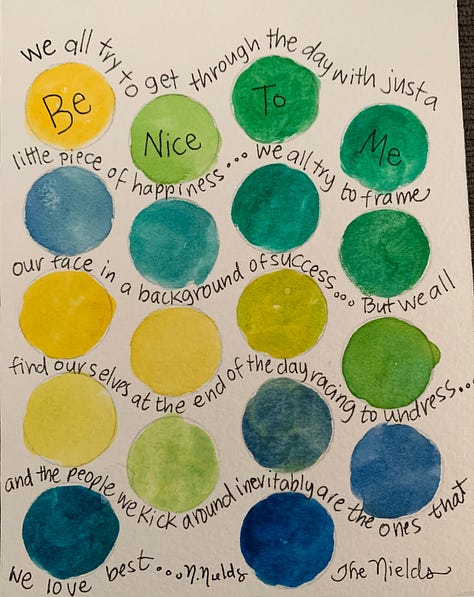 we all try to get through the day with just a
Be Nice To Me
little piece of happiness... we all try to frame
our face in a background of success... But we all
find ourselves at the end of the day racing to undress...
and the people we kick around inevitably are the ones that
we love best... N. Nields The Nields